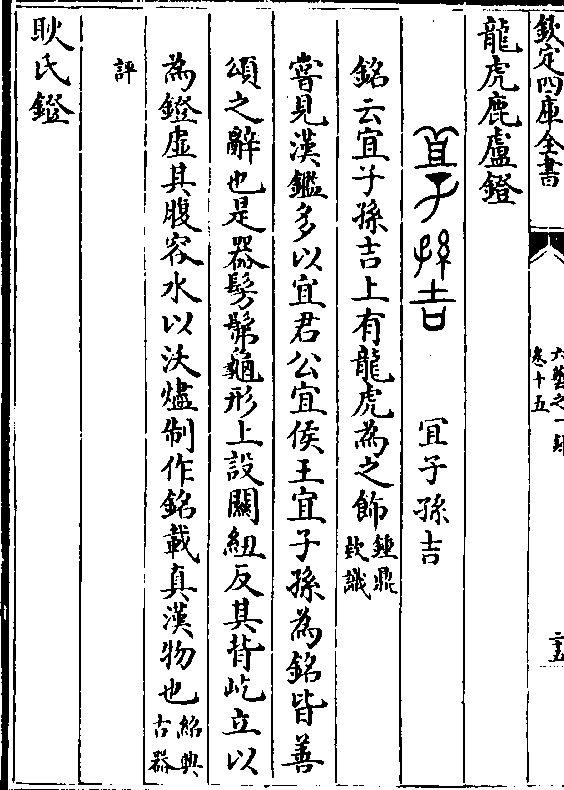 欽定四庫全書
六藝之一錄
卷十五
二十五
龍虎鹿盧鐙
宜子孫吉
宜子孫吉
銘云宜子孫吉上有龍虎為之飾鍾鼎款識
嘗見漢鑑多以宜君公宜侯王宜子孫為銘皆善
頌之辭也是器髣髴龜形上設關紐反其背屹立以
為鐙虛其腹容水以沃燼制作銘載真漢物也紹興古器
評
耿氏鐙